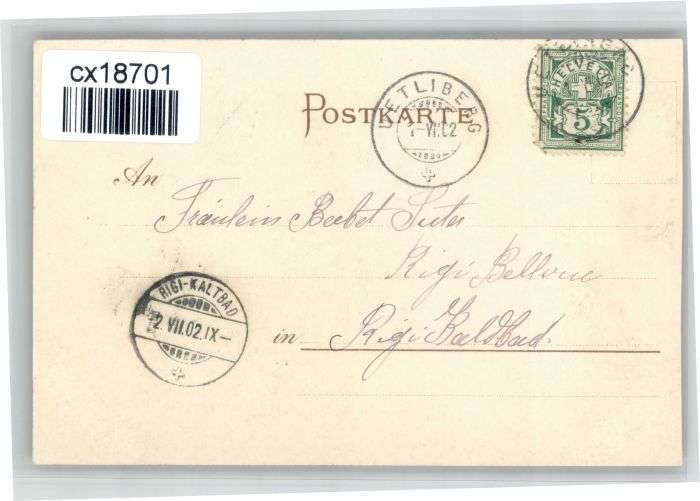 cx18701
POSTKARTE
UETLIBERG
1-VII.02
HELVETIA
5
An
Fräulein Babet Suter
Rigi Bellevue
in Rigi Kaltbad.
RIGI-KALTBAD
2.VII.02.IX-